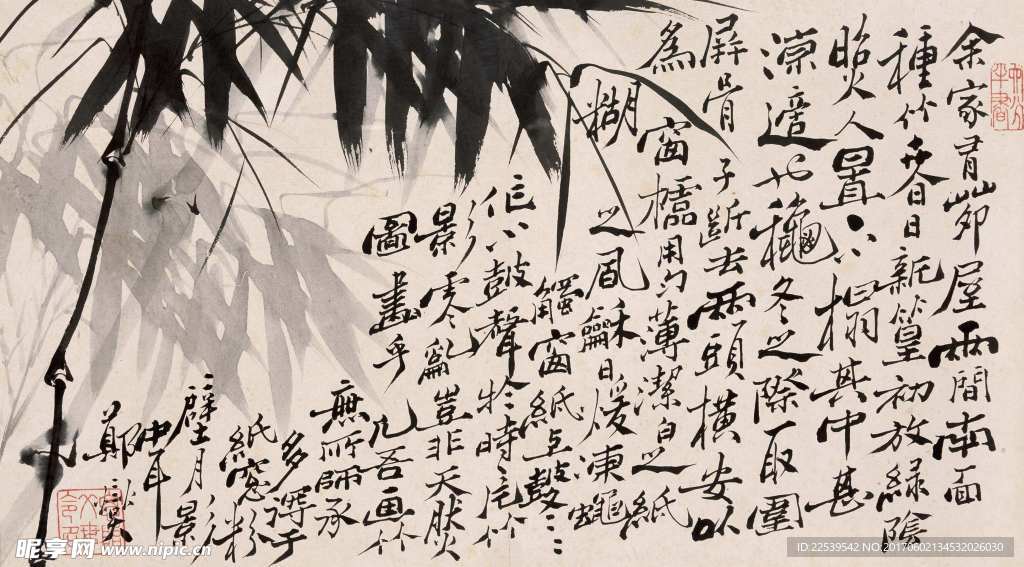 余家有茆屋兩間南面
種竹夏日新篁初放綠陰
照人置小榻其中甚
涼適也龝冬之際取圍
屏骨子斷去兩頭橫安以
為窗櫺用勻薄潔白之紙
糊之風龢日煖凍蠅
觸窗紙上鼕鼕
作小鼓聲於時一片竹
影零亂豈非天然
圖畫乎凡吾画竹
無所師承
多得于
紙窓粉
壁月影
中耳
鄭燮
昵享网 www.nipic.cn
ID:22539542 NO:20170602134532026030